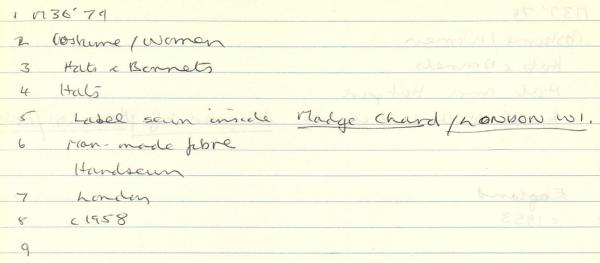 1 M36'79
2 Costume/Women
3 Hats & Bonnets
4 Hats
5 Label sewn inside Madge Chard/LONDON W1.
6 Man-made fibre
Handsewn
7 London
8 c1958
9